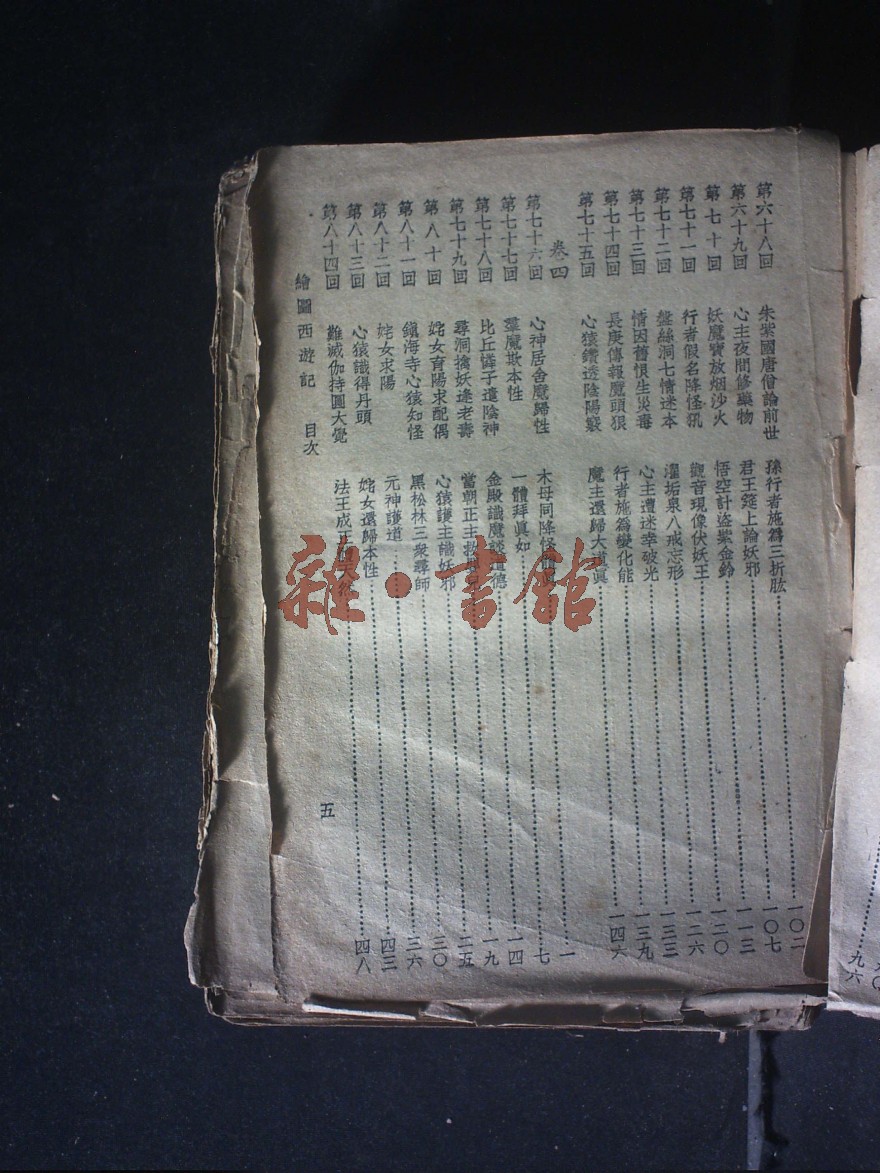 第六十八回 朱紫國唐僧論前世 孫行者施爲三折肱 一〇二
第六十九回 心主夜間修藥物 君王筵上論妖邪 一〇七
第七十回 妖魔寶放烟沙火 悟空計盜紫金鈴 一一三
第七十一回 行者假名降怪犼 觀音現像伏妖王 一二〇
第七十二回 盤絲洞七情迷本 濯垢泉八戒忘形 一二六
第七十三回 情因舊恨生災毒 心主遭迷幸破光 一三三
第七十四回 長庚傳報魔頭狠 行者施爲變化能 一三九
第七十五回 心猿鑽透陰陽竅 魔主還歸大道眞 一四六
卷四
第七十六回 心神居舍魔歸性 木母同降怪 一
第七十七回 羣魔欺本性 一體拜眞如 七
第七十八回 比丘憐子遣陰神 金殿識魔談道德 一四
第七十九回 尋洞擒妖逢老壽 當朝正主救 一九
第八十回 姹女育陽求配偶 心猿護主識妖邪 二五
第八十一回 鎭海寺心猿知怪 黑松林三衆尋師 三〇
第八十二回 姹女求陽 元神護道 三六
第八十三回 心猿識得丹頭 姹女還歸本性 四三
第八十四回 難滅伽持圓大覺 法王成正天然 四八
繪圖西遊記 目次 五
九六
雜·書館